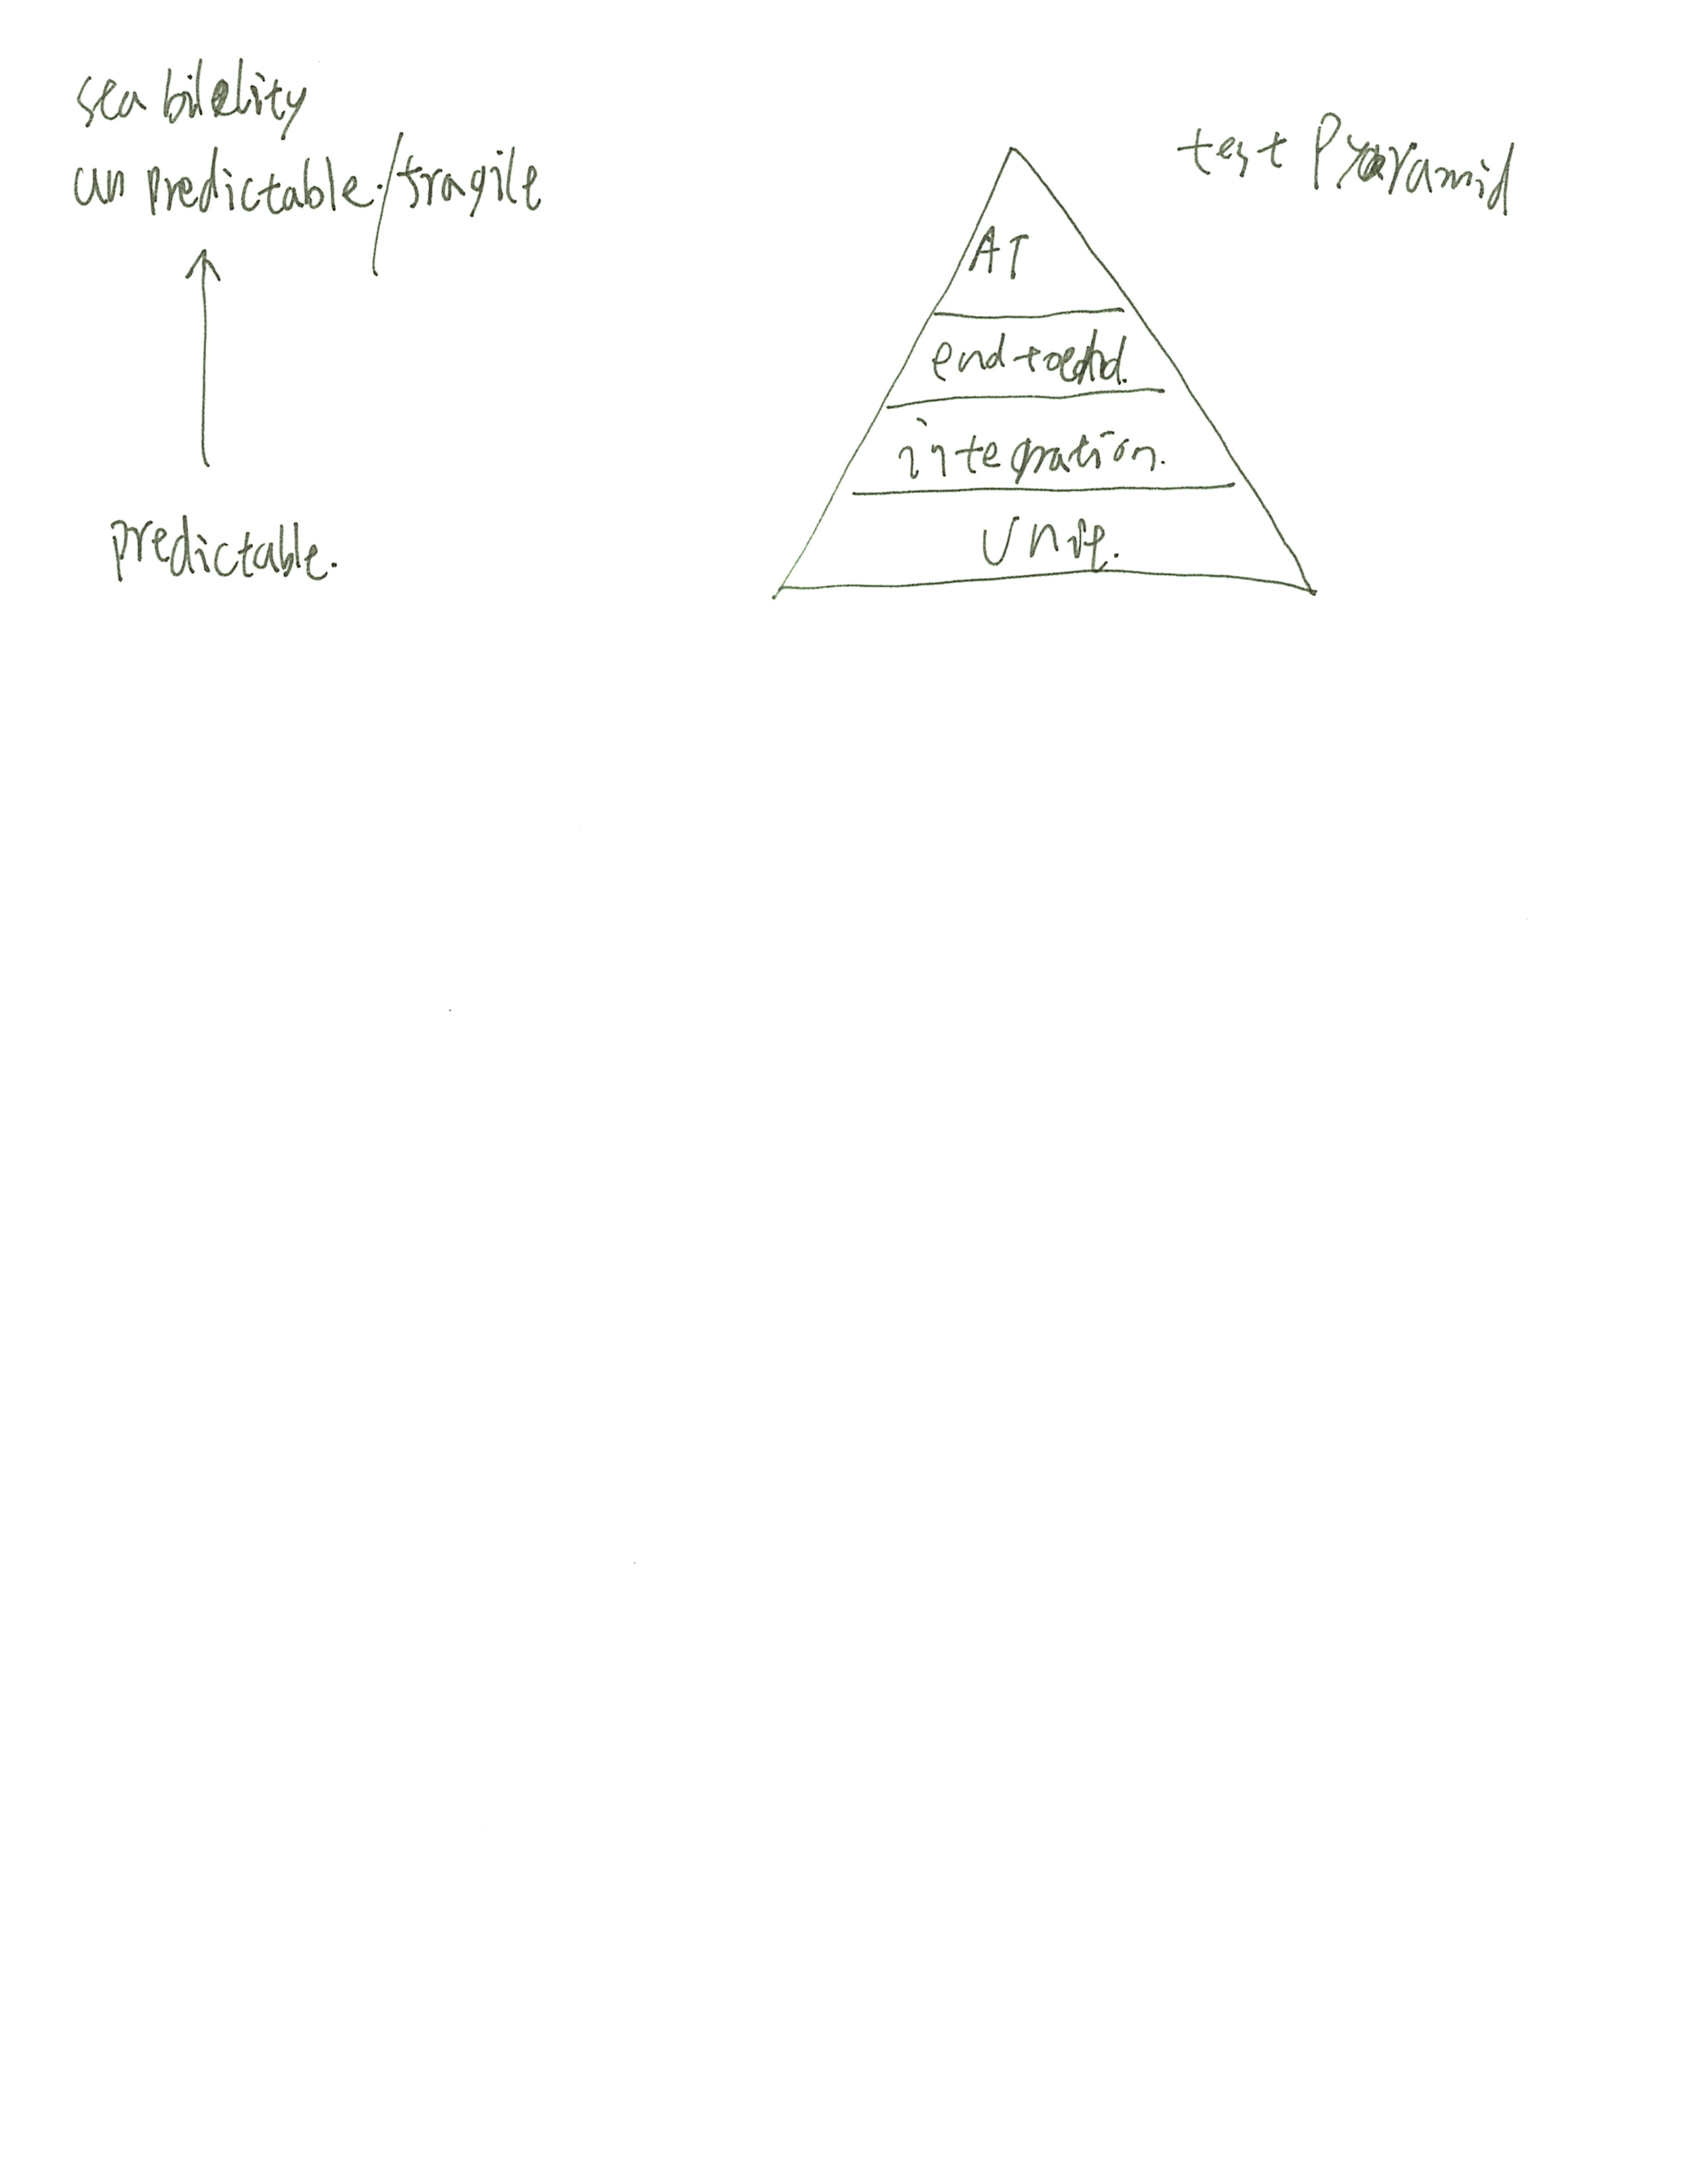 stability
unpredictable./fragile
predictable.
test Pyramid
AT
end to end.
integration.
Unit.